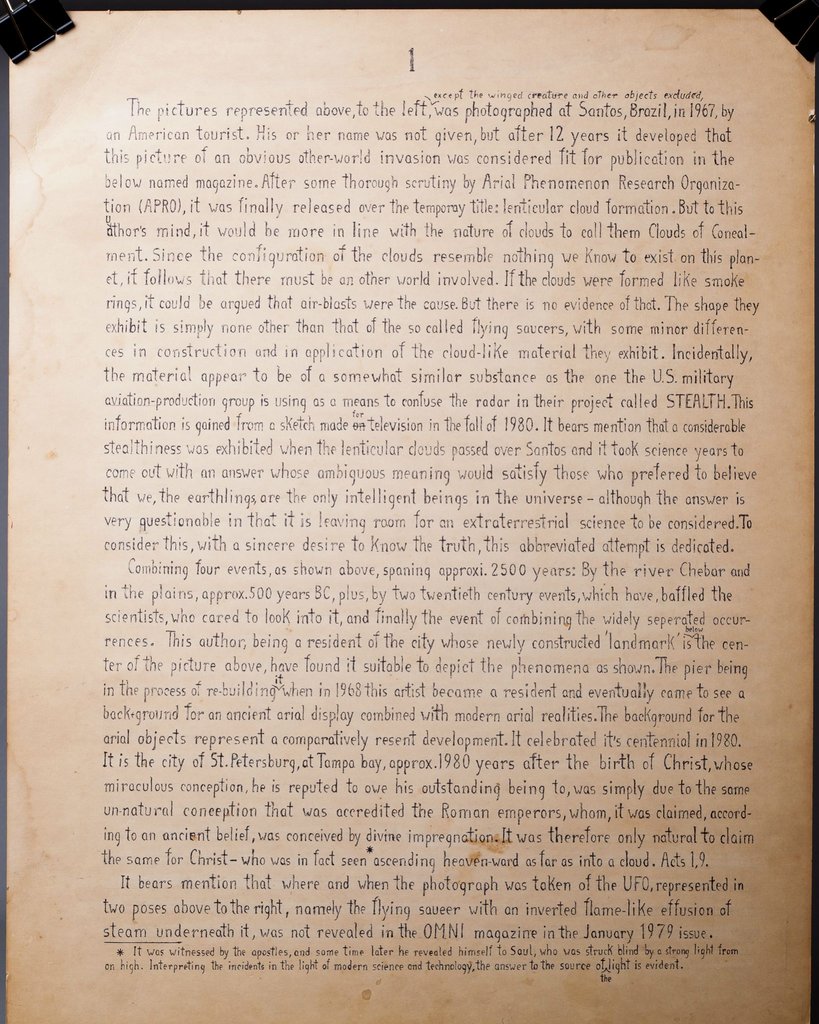 1
except the winged creature and other objects excluded,
The pictures represented above, to the left, was photographed at Santos, Brazil, in 1967, by
an American tourist. His or her name was not given, but after 12 years it developed that
this picture of an obvious other-world invasion was considered fit for publication in the
below named magazine. After some thorough scrutiny by Arial Phenomenon Research Organiza-
tion (APRO), it was finally released over the temporay title: lenticular cloud formation. But to this
author's mind, it would be more in line with the nature of clouds to call them Clouds of Conceal-
ment. Since the configuration of the clouds resemble nothing we know to exist on this plan-
et, it follows that there must be an other world involved. If the clouds were formed like smoke
rings, it could be argued that air-blasts were the cause. But there is no evidence of that. The shape they
exhibit is simply none other than that of the so called flying saucers, with some minor differen-
ces in construction and in application of the cloud-like material they exhibit. Incidentally,
the material appear to be of a somewhat similar substance as the one the U.S. military
aviation-production group is using as a means to confuse the radar in their project called STEALTH. This
information is gained from a sketch made on for television in the fall of 1980. It bears mention that a considerable
stealthiness was exhibited when the lenticular clouds passed over Santos and it took science years to
come out with an answer whose ambiguous meaning would satisfy those who prefered to believe
that we, the earthlings, are the only intelligent beings in the universe – although the answer is
very questionable in that it is leaving room for an extraterrestrial science to be considered. To
consider this, with a sincere desire to know the truth, this abbreviated attempt is dedicated.
Combining four events, as shown above, spaning approxi. 2500 years: By the river Chebar and
in the plains, approx. 500 years BC, plus, by two twentieth century events, which have, baffled the
scientists, who cared to look into it, and finally the event of combining the widely seperated occur-
rences. This author, being a resident of the city whose newly constructed 'landmark' is below the cen-
ter of the picture above, have found it suitable to depict the phenomena as shown. The pier being
in the process of re-building it when in 1968 this artist became a resident and eventually came to see a
back-ground for an ancient arial display combined with modern arial realities. The background for the
arial objects represent a comparatively resent development. It celebrated it's centennial in 1980.
It is the city of St. Petersburg, at Tampa bay, approx. 1980 years after the birth of Christ, whose
miraculous conception, he is reputed to owe his outstanding being to, was simply due to the same
un-natural conception that was accredited the Roman emperors, whom, it was claimed, accord-
ing to an ancient belief, was conceived by divine impregnation. It was therefore only natural to claim
the same for Christ – who was in fact seen *ascending heaven-ward as far as into a cloud. Acts 1,9.
It bears mention that where and when the photograph was taken of the UFO, represented in
two poses above to the right, namely the flying saucer with an inverted flame-like effusion of
steam underneath it, was not revealed in the OMNI magazine in the January 1979 issue.
* It was witnessed by the apostles, and some time later he revealed himself to Saul, who was struck blind by a strong light from
on high. Interpreting the incidents in the light of modern science and technology, the answer to the source of the light is evident.